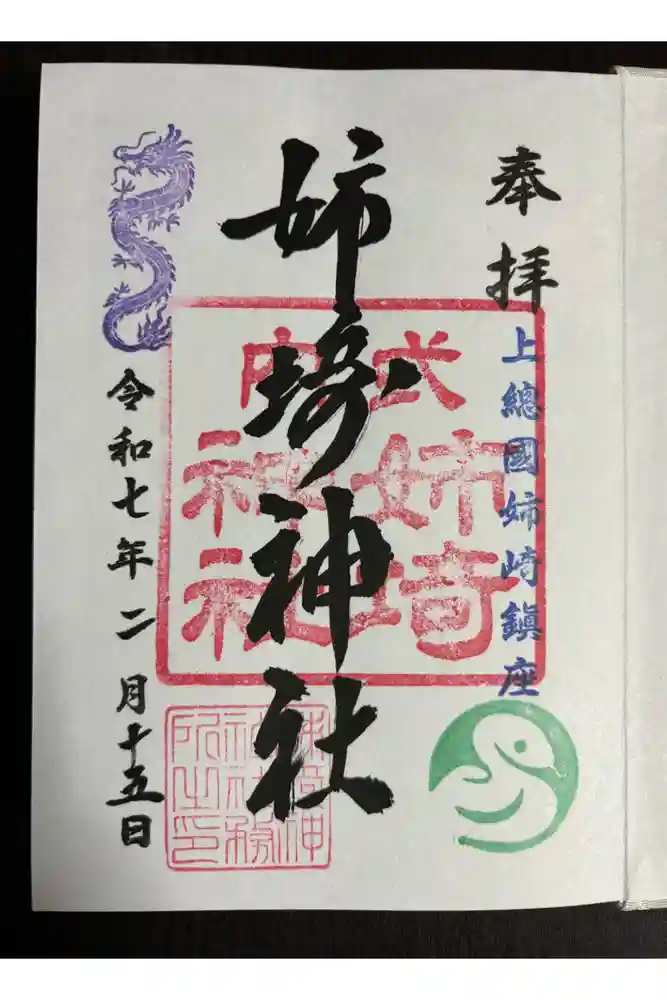 奉拝
上總國姉崎鎮座
姉埼神社
式内
姉埼
神社
令和七年二月十五日